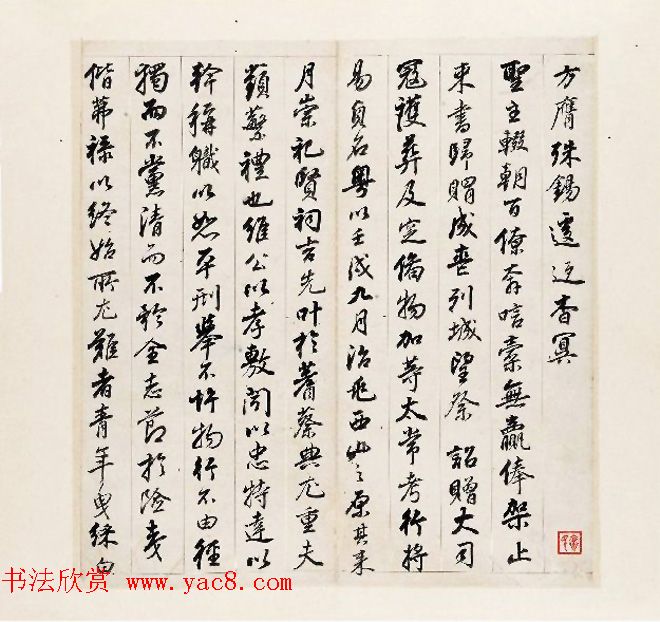 方膺殊錫遽返杳冥
聖主輟朝百僚奔唁橐無贏俸架止
束書歸賵成喪列城望祭 詔贈大司
寇護葬及窆備物加等太常考行將
易貞名粵以壬戌九月治兆西山之原其來
月崇祀賢祠吉先叶於蓍蔡典尤重夫
蘋蘩禮也維公以孝敷聞以忠特達以
幹稱職以恕平刑舉不忤物行不由徑
獨而不黨清而不矜全志節於險夷
偕茀祿以終始所尤難者青年曳綠白
书法欣赏 www.yac8.com